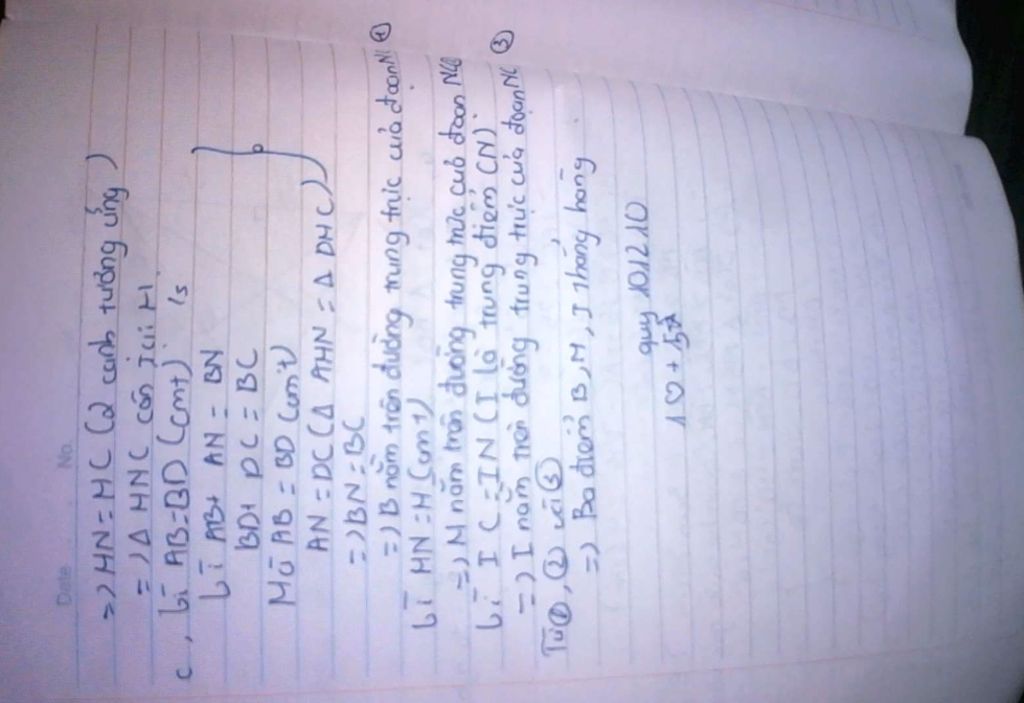 Date No.
=> HN = HC (2 cạnh tương ứng)
=> Δ HNC cân tại H
c, Vì AB = BD (cmt)
Vì AB + AN = BN
BD + DC = BC
Mà AB = BD (cmt)
AN = DC (Δ AHN = Δ DHC)
=> BN = BC
=> B nằm trên đường trung trực của đoạn NC ①
Vì HN = H (cmt)
=> H nằm trên đường trung trực của đoạn NC
Vì IC = IN (I là trung điểm CN)
=> I nằm trên đường trung trực của đoạn NC ③
Từ ①, ② và ③
=> Ba điểm B, H, I thẳng hàng
quy 101210
1♡ + 5☆